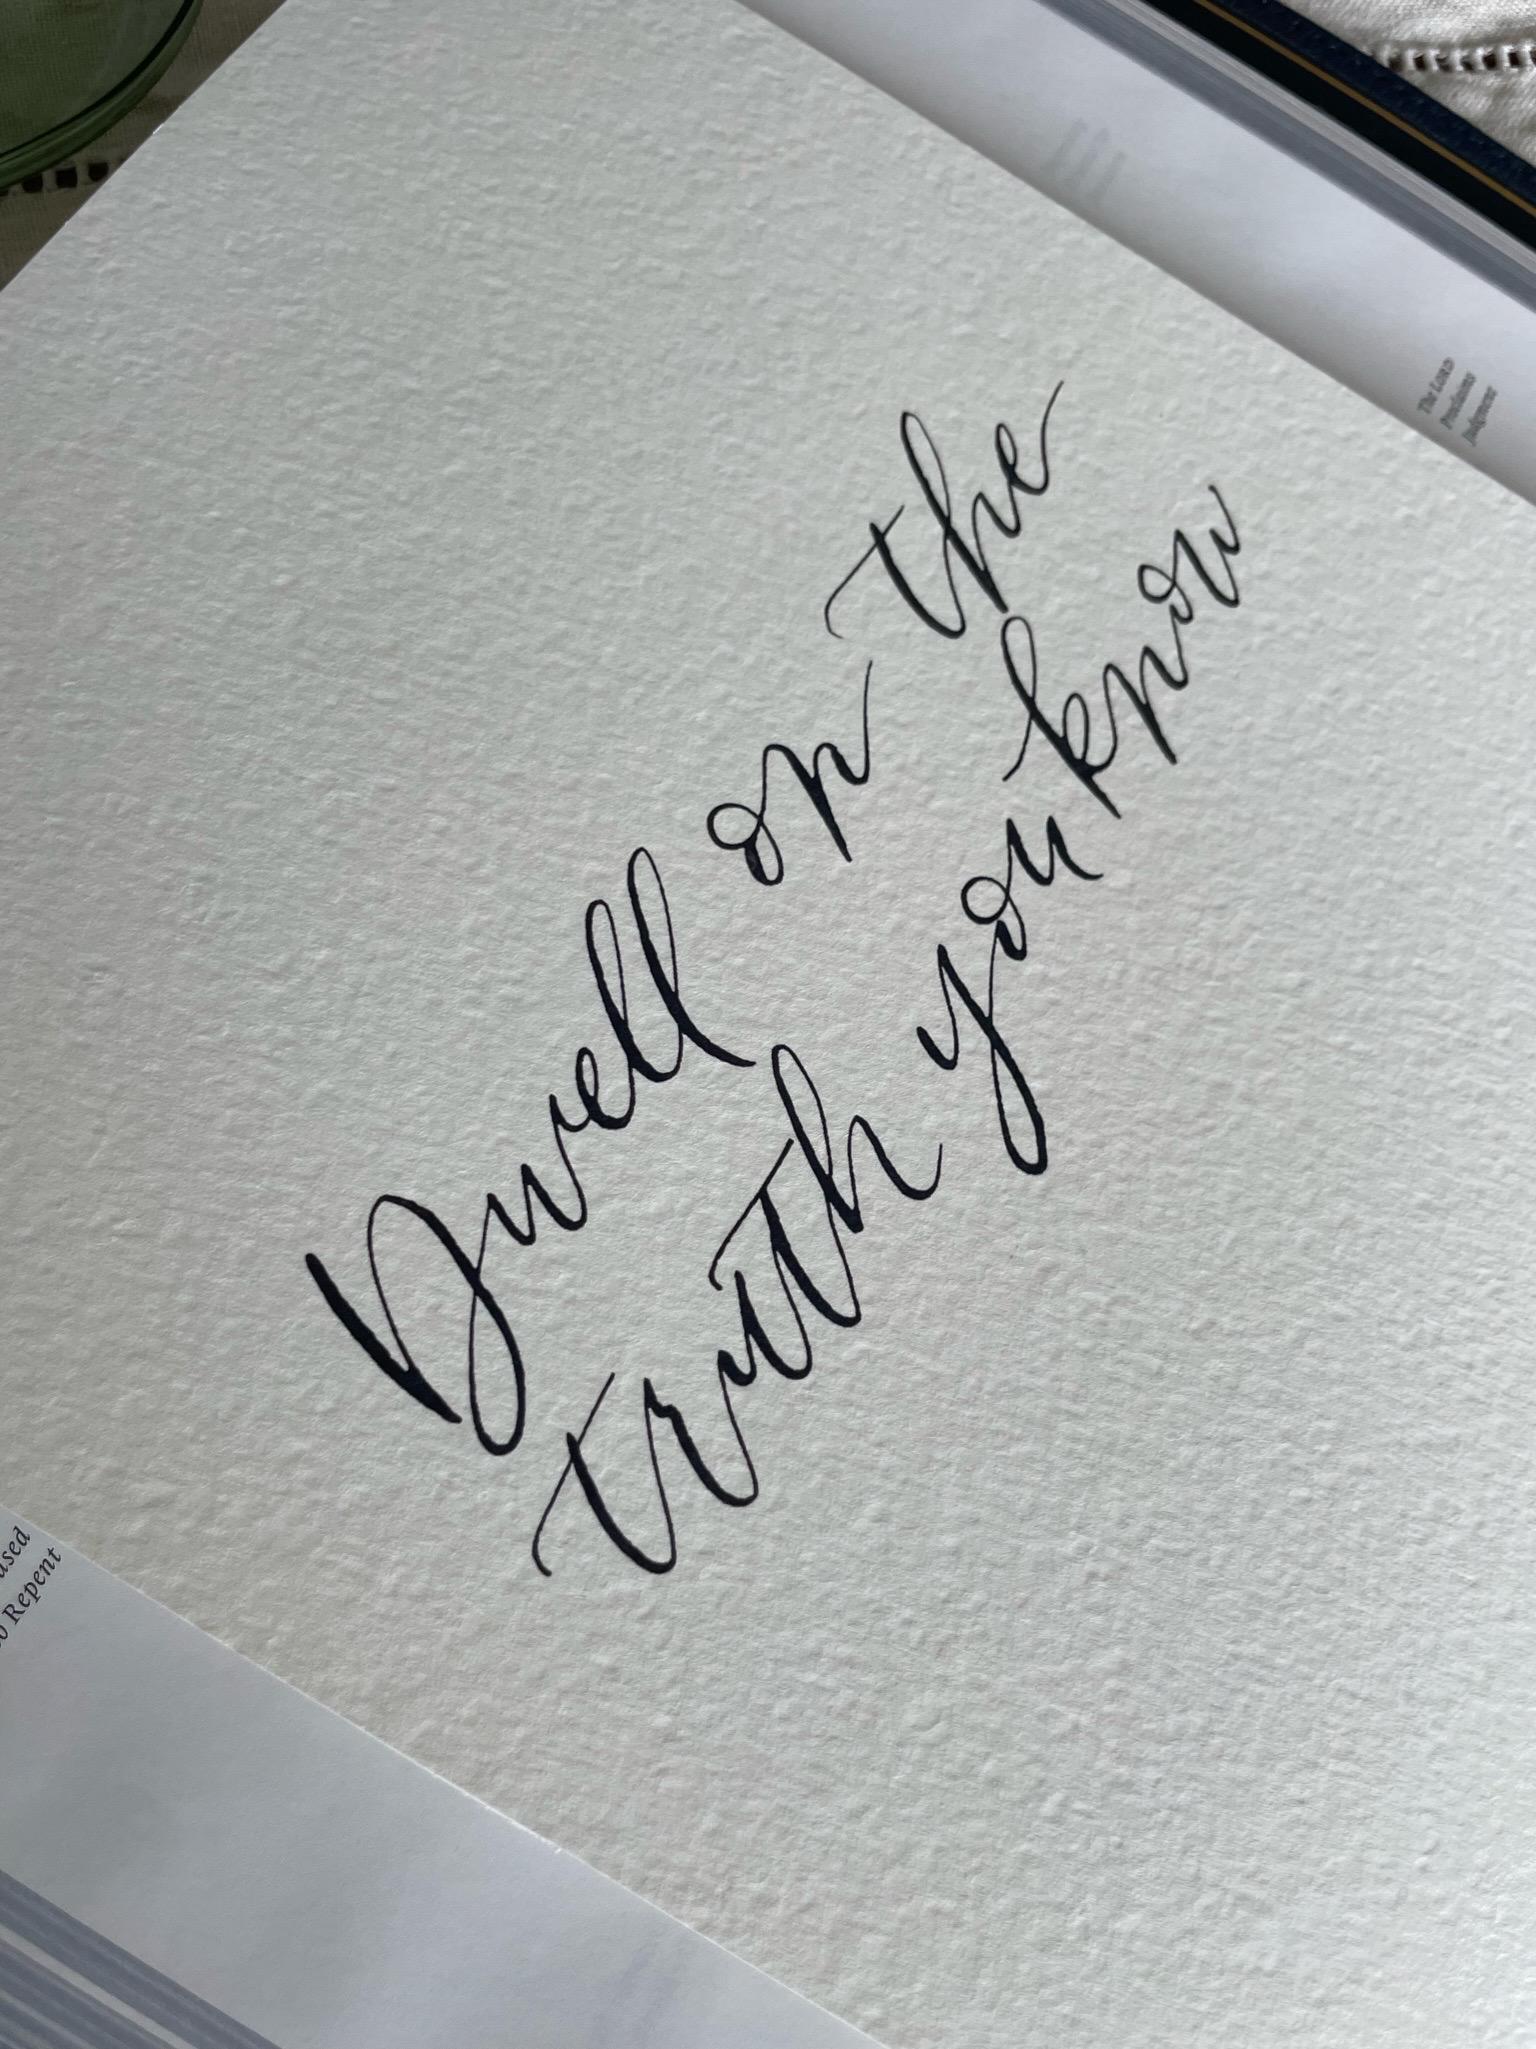 Dwell on the
truth you know
The LORD
Proclaims
Judgment
Repent